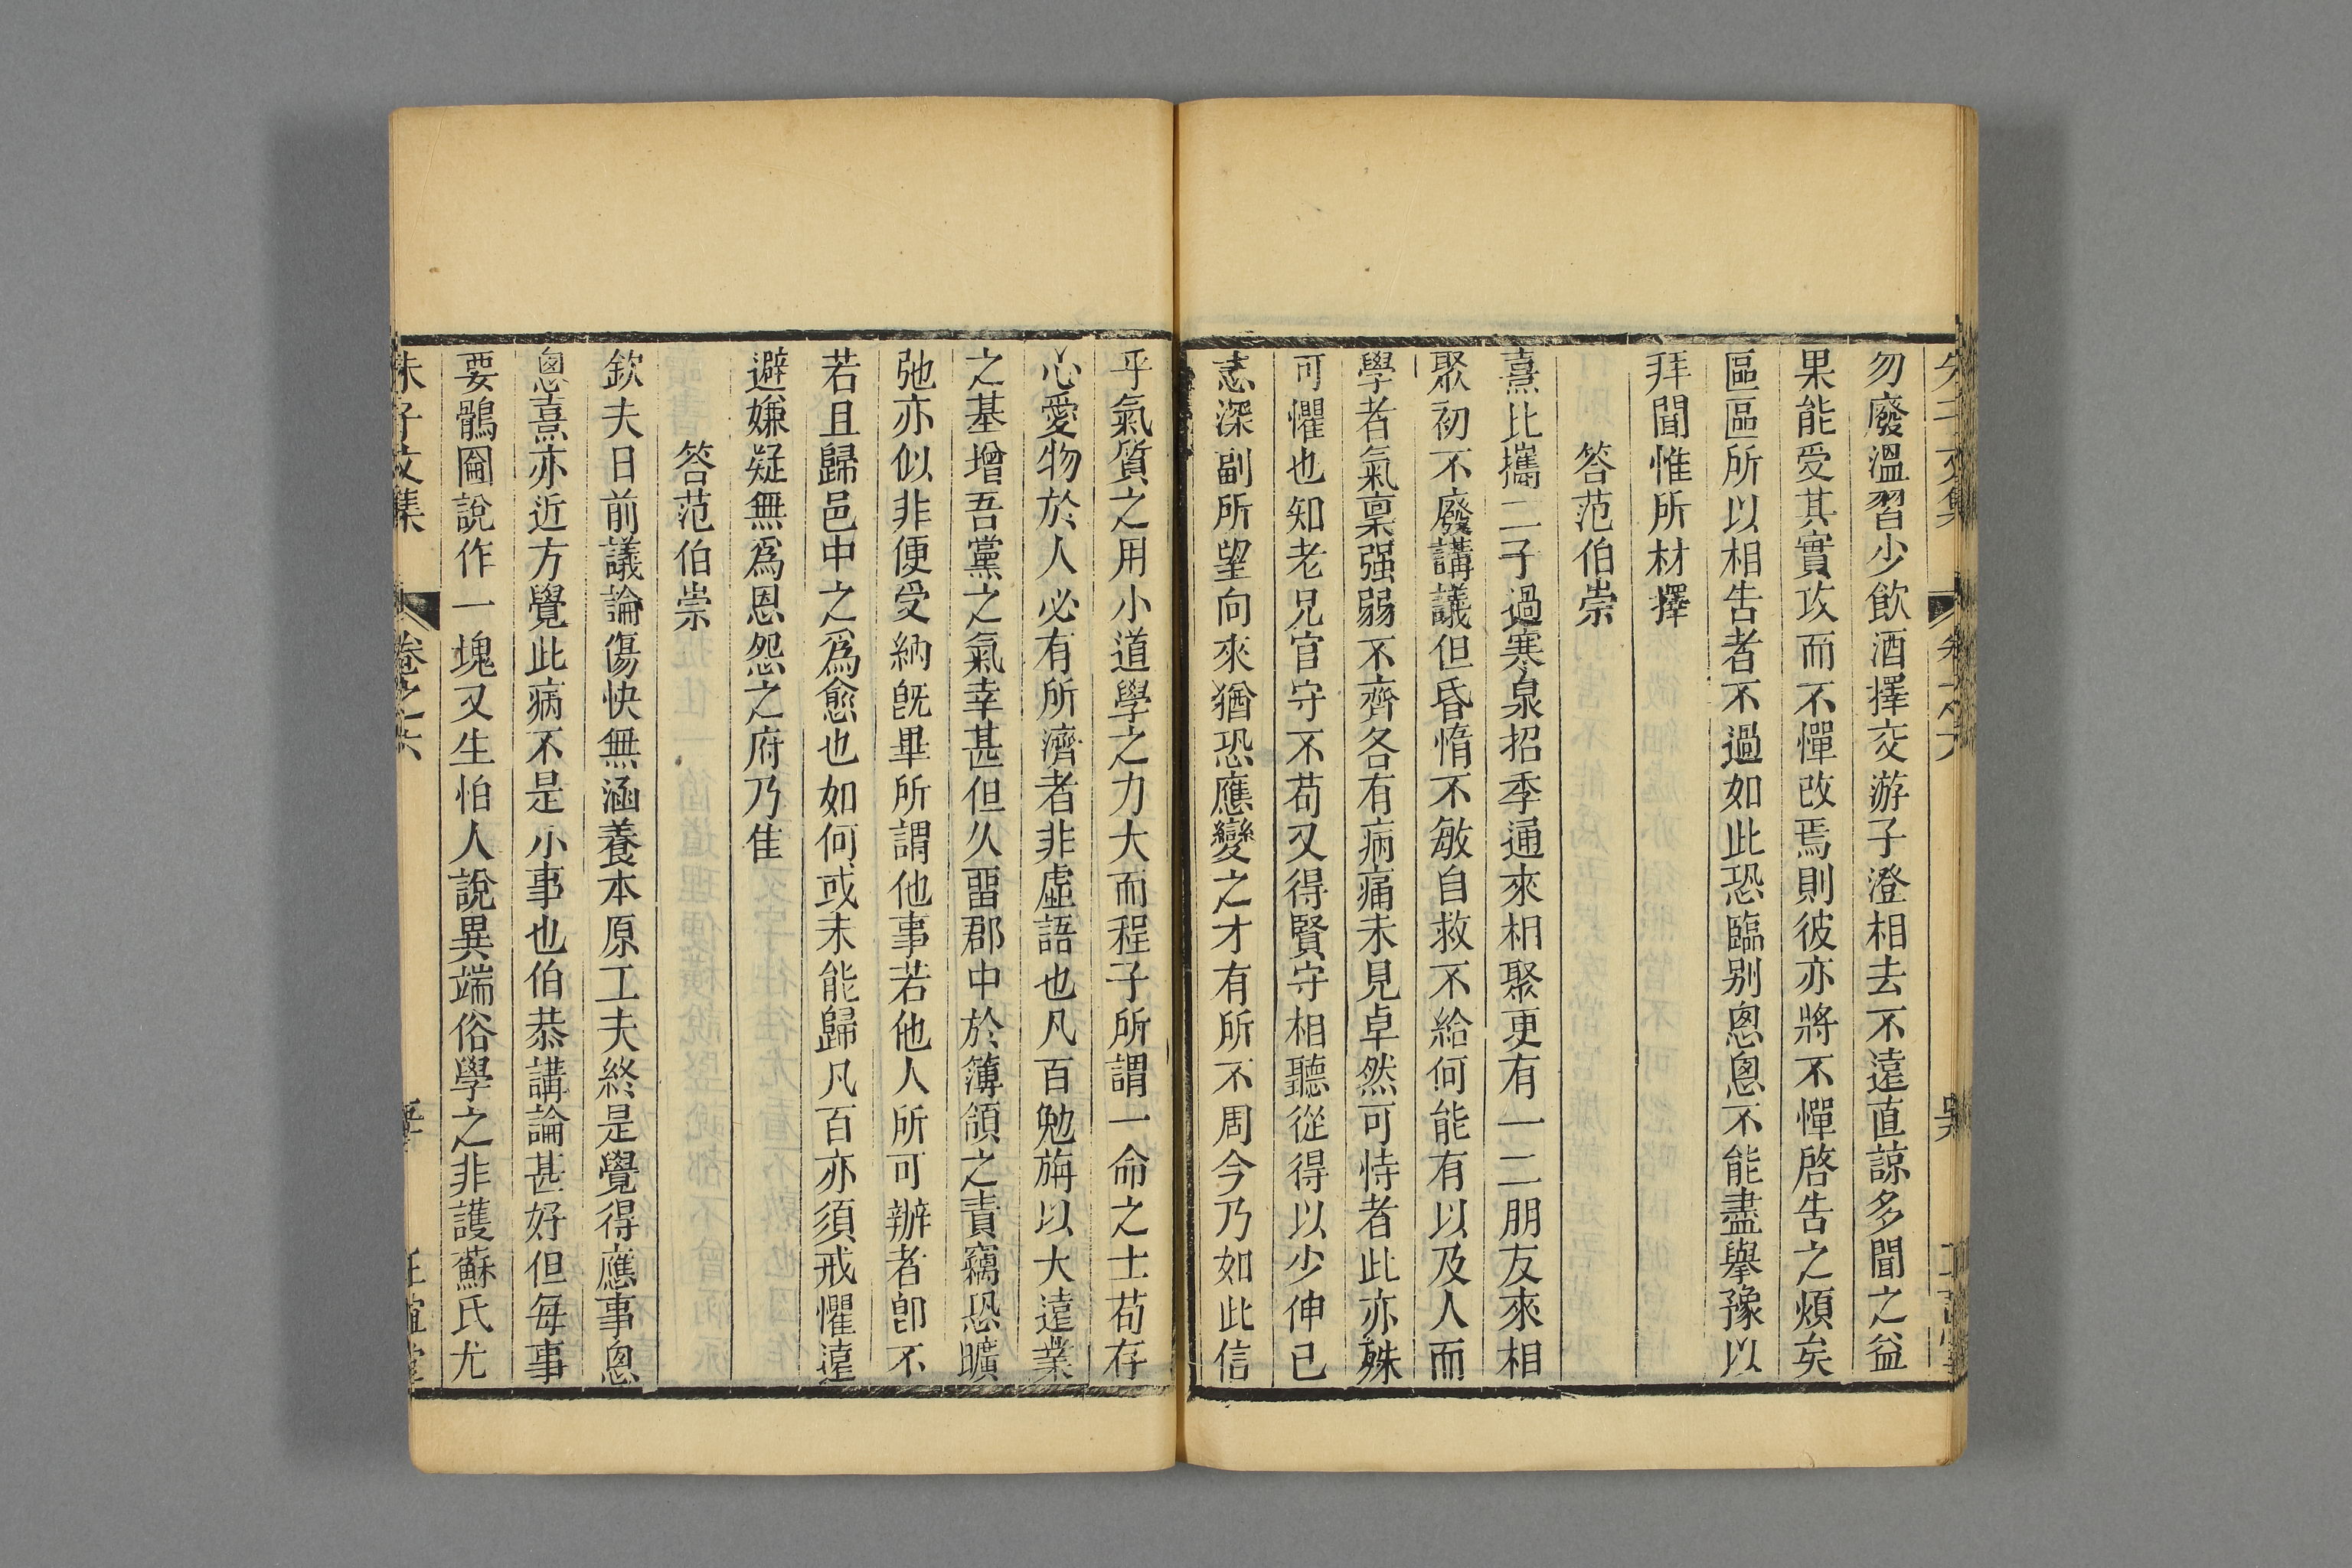 勿廢溫習少飲酒擇交游子澄相去不遠直諒多聞之益
果能受其實攻而不憚改焉則彼亦將不憚啓告之煩矣
區區所以相告者不過如此恐臨别悤悤不能盡舉豫以
拜聞惟所材擇
答范伯崇
熹比攜二子過寒泉招季通來相聚更有一二朋友來相
聚初不廢講議但昏惰不敏自救不給何能有以及人而
學者氣稟强弱不齊各有病痛未見卓然可恃者此亦殊
可懼也知老兄官守不苟又得賢守相聽從得以少伸已
志深副所望向來猶恐應變之才有所不周今乃如此信
乎氣質之用小道學之力大而程子所謂一命之士苟存
心愛物於人必有所濟者非虛語也凡百勉旃以大遠業
之基增吾黨之氣幸甚但久畱郡中於簿領之責竊恐曠
弛亦似非便受納旣畢所謂他事若他人所可辦者卽不
若且歸邑中之爲愈也如何或未能歸凡百亦須戒懼遠
避嫌疑無爲恩怨之府乃佳
答范伯崇
欽夫日前議論傷快無涵養本原工夫終是覺得應事悤
悤熹亦近方覺此病不是小事也伯恭講論甚好但每事
要鶻圇說作一塊又生怕人說異端俗學之非護蘇氏尤
朱子文集 卷之六